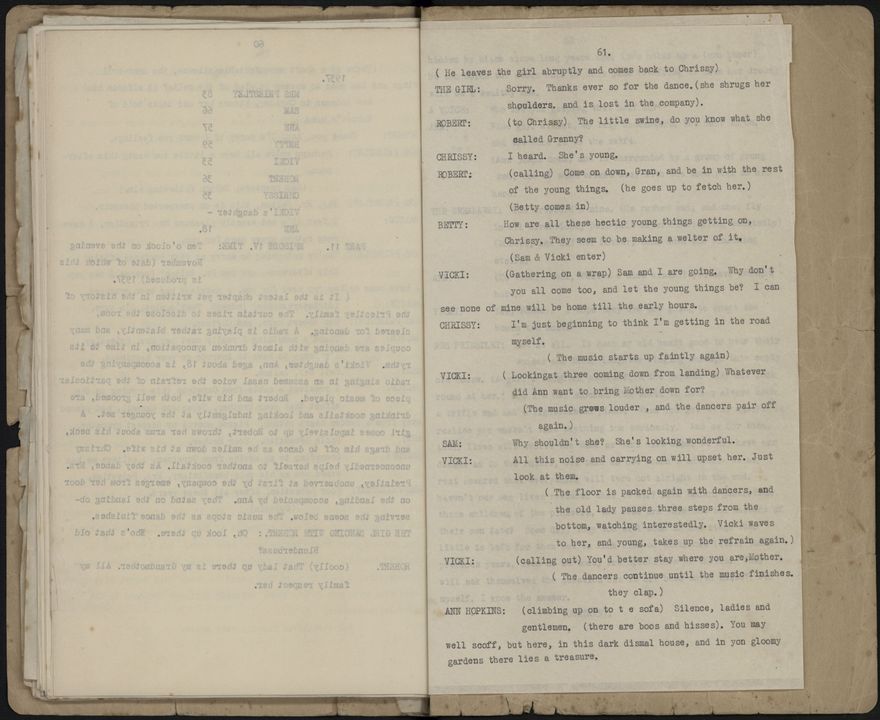 61.
( He leaves the girl abruptly and comes back to Chrissy)
THE GIRL: Sorry. Thanks ever so for the dance.(she shrugs her
shoulders. and is lost in the company).
ROBERT: (to Chrissy) The little swine, do you know what she
called Granny?
CHRISSY: I heard. She's young.
ROBERT: (calling) Come on down, Gran, and be in with the rest
of the young things. (he goes up to fetch her.)
(Betty comes in)
BETTY: How are all these hectic young things getting on,
Chrissy. They seem to be making a welter of it.
(Sam & Vicki enter)
VICKI: (Gathering on a wrap) Sam and I are going. Why don't
you all come too, and let the young things be? I can
see none of mine will be home till the early hours.
CHRISSY: I'm just beginning to think I'm getting in the road
myself.
( The music starts up faintly again)
VICKI: ( Lookingat three coming down from landing) Whatever
did Ann want to bring Mother down for?
(The music grows louder , and the dancers pair off
again.)
SAM: Why shouldn't she? She's looking wonderful.
VICKI: All this noise and carrying on will upset her. Just
look at them.
( The floor is packed again with dancers, and
the old lady pauses three steps from the
bottom, watching interestedly. Vicki waves
to her, and young, takes up the refrain again.)
VICKI: (calling out) You'd better stay where you are,Mother.
( The dancers continue until the music finishes.
they clap.)
ANN HOPKINS: (climbing up on to t e sofa) Silence, ladies and
gentlemen. (there are boos and hisses). You may
well scoff, but here, in this dark dismal house, and in yon gloomy
gardens there lies a treasure.